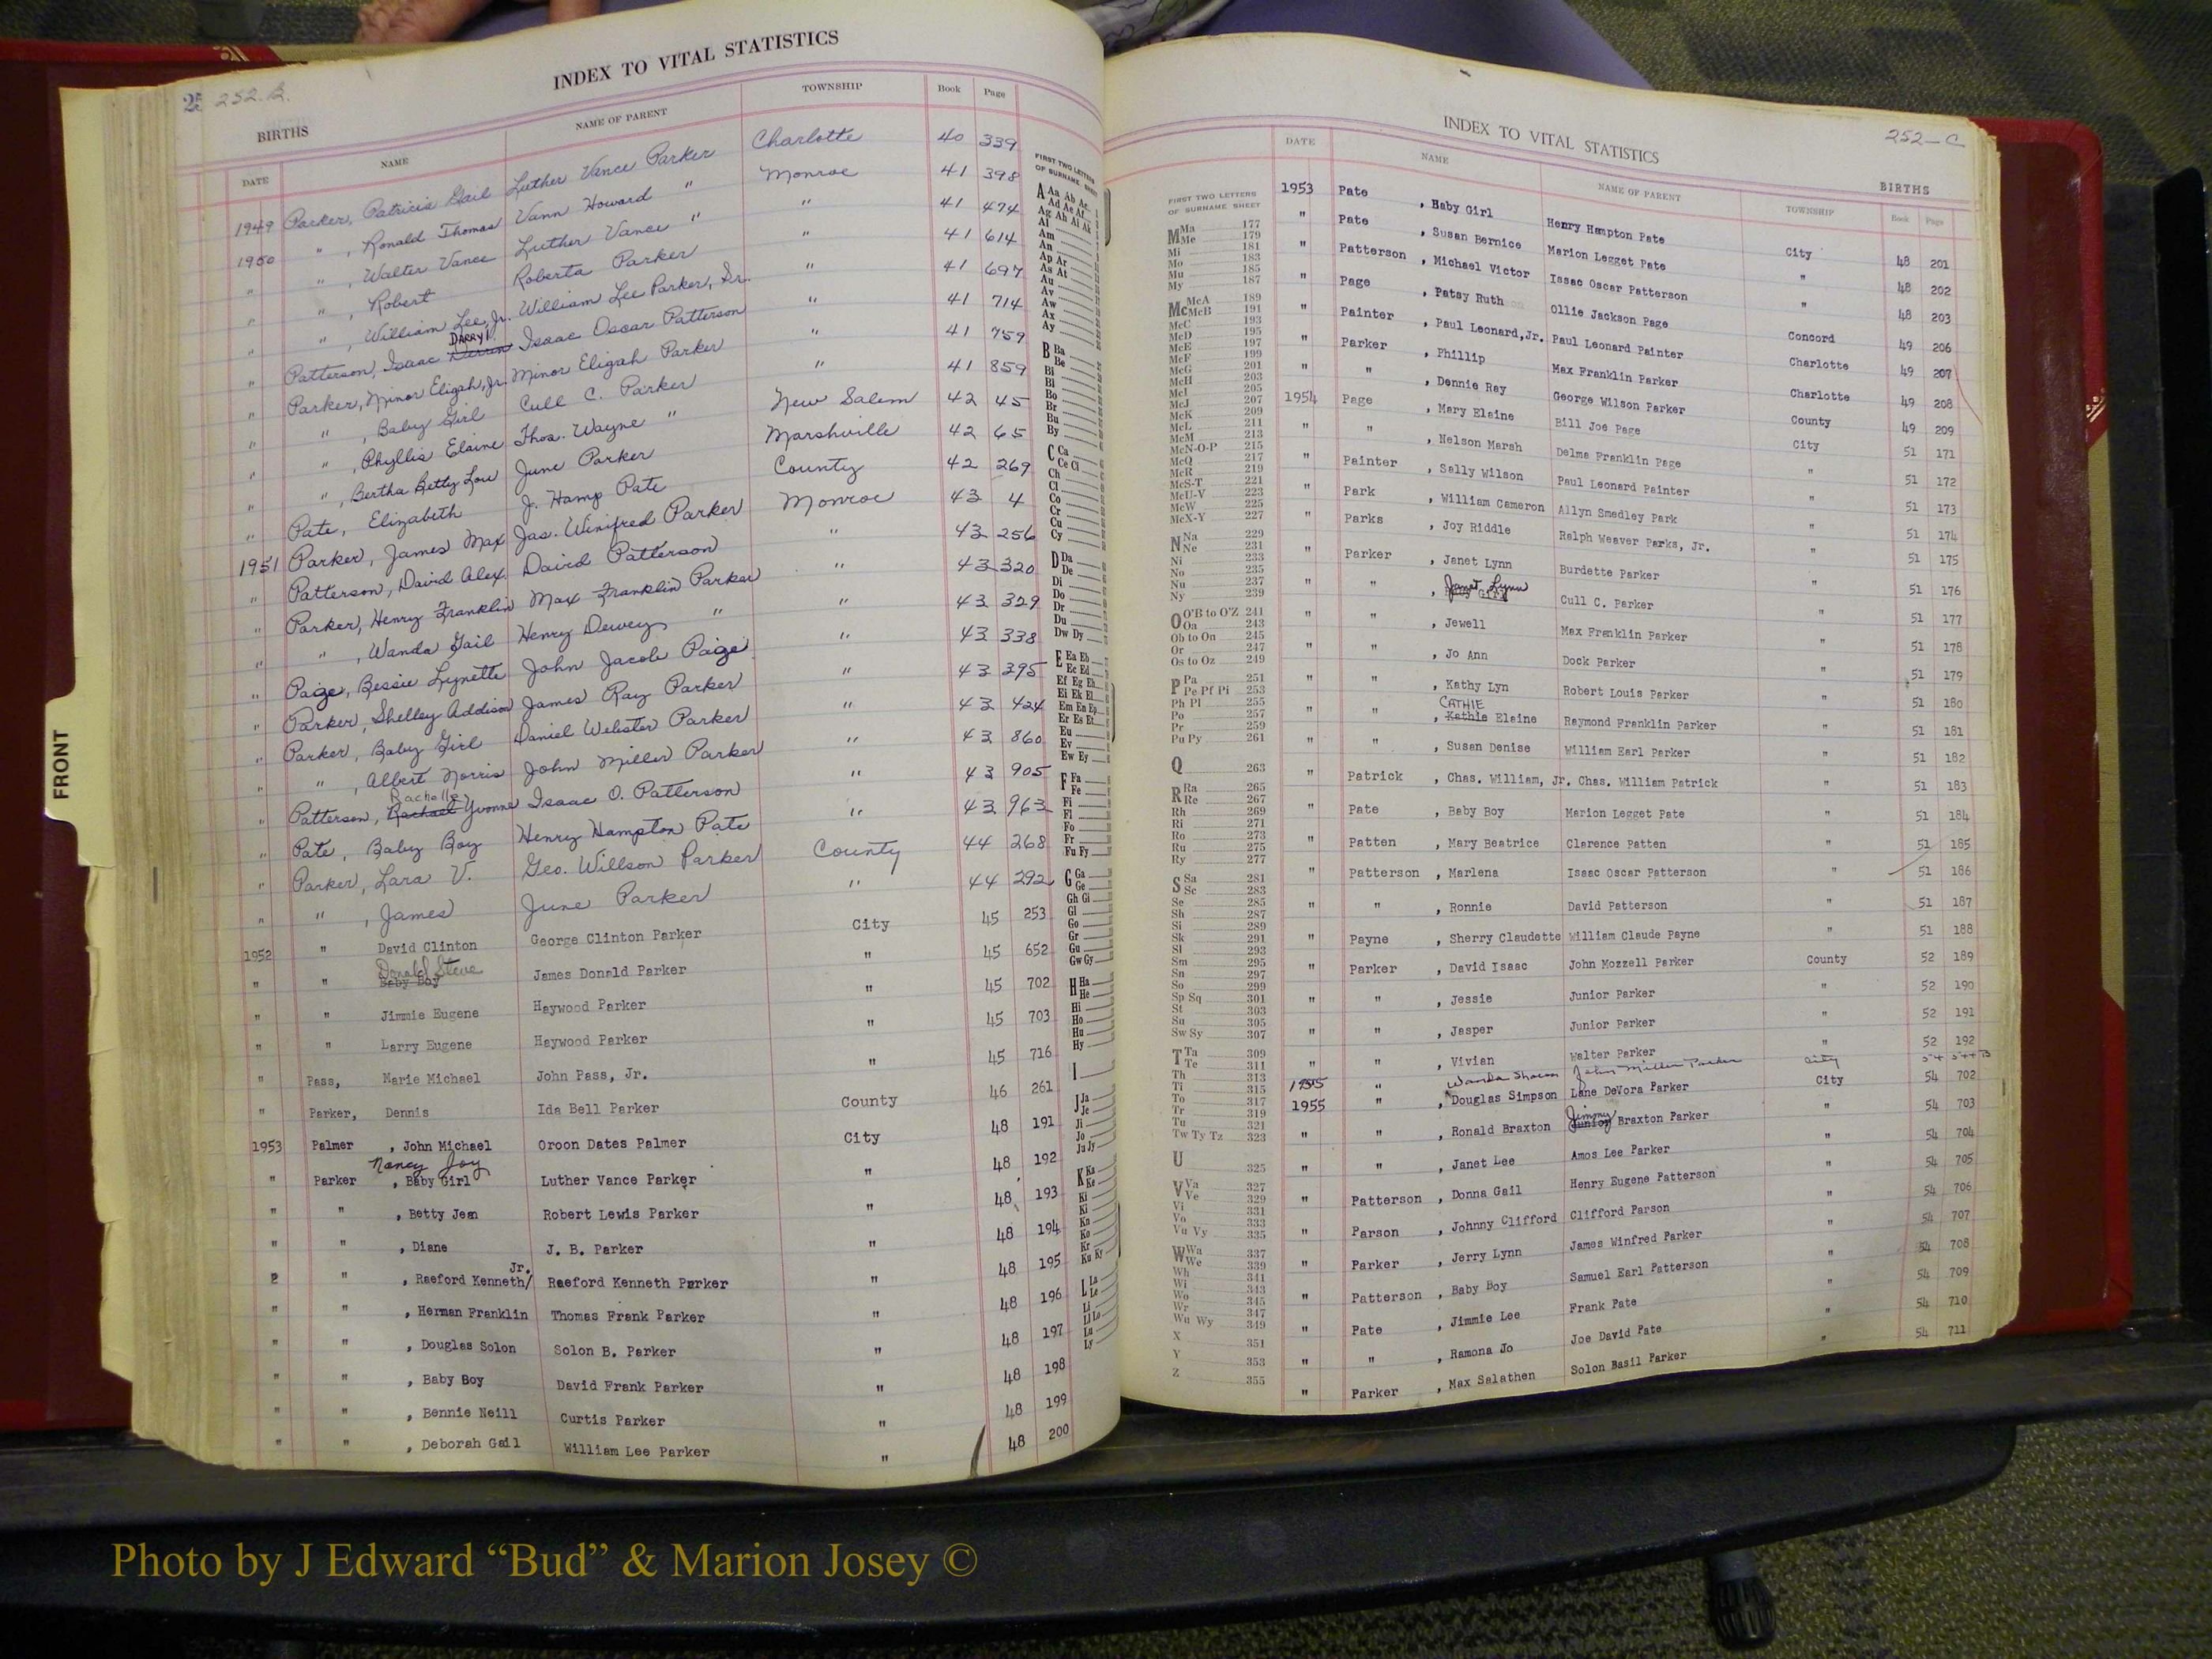 252-B.
INDEX TO VITAL STATISTICS
BIRTHS
DATE NAME NAME OF PARENT TOWNSHIP Book Page
1949 Parker, Patricia Gail Luther Vance Parker Charlotte 40 339
1950 " , Ronald Thomas Vann Howard " Monroe 41 398
" " , Walter Vance Luther Vance " " 41 474
" " , Robert Roberta Parker " 41 614
" " , William Lee, Jr. William Lee Parker, Sr. " 41 697
DARRYL
" Patterson, Isaac Isaac Oscar Patterson " 41 714
" Parker, Minor Eligah, Jr. Minor Eligah Parker " 41 759
" " , Baby Girl Cull C. Parker " 41 859
" " , Phyllis Elaine Thos. Wayne " New Salem 42 45
" " , Bertha Betty Lou June Parker Marshville 42 65
" Pate, Elizabeth J. Hamp Pate County 42 269
1951 Parker, James Max Jas. Winifred Parker Monroe 43 4
" Patterson, David Alex David Patterson " 43 256
" Parker, Henry Franklin Max Franklin Parker " 43 320
" " , Wanda Gail Henry Dewey " " 43 329
" Paige, Bessie Lynette John Jacob Paige " 43 338
" Parker, Shelley Addison James Ray Parker " 43 395
" Parker, Baby Girl Daniel Webster Parker " 43 424
" " , Albert Norris John Miller Parker " 43 860
Rachelle
" Patterson, Rachael Yvonne Isaac O. Patterson " 43 905
" Pate, Baby Boy Henry Hampton Pate " 43 963
" Parker, Lara V. Geo. Willson Parker County 44 268
" " , James June Parker " 44 292
1952 " David Clinton George Clinton Parker City 45 253
Donald Steve
" " Baby Boy James Donald Parker " 45 652
" " Jimmie Eugene Haywood Parker " 45 702
" " Larry Eugene Haywood Parker " 45 703
" Pass, Marie Michael John Pass, Jr. " 45 716
" Parker, Dennis Ida Bell Parker County 46 261
1953 Palmer , John Michael Oroon Dates Palmer City 48 191
Nancy Joy
" Parker , Baby Girl Luther Vance Parker " 48 192
" " , Betty Jean Robert Lewis Parker " 48 193
" " , Diane J. B. Parker " 48 194
Jr.
" " , Raeford Kenneth/ Raeford Kenneth Parker " 48 195
" " , Herman Franklin Thomas Frank Parker " 48 196
" " , Douglas Solon Solon B. Parker " 48 197
" " , Baby Boy David Frank Parker " 48 198
" " , Bennie Neill Curtis Parker " 48 199
" " , Deborah Gail William Lee Parker " 48 200
FRONT
FIRST TWO LETTERS
OF SURNAME SHEET
A Aa Ab Ac
Ad Ae Af
Ag Ah Ai Ak
Al
Am
An
Ap Ar
As At
Au
Av
Aw
Ax
Ay
B Ba
Be
Bi
Bl
Bo
Br
Bu
By
C Ca
Ce Ci
Ch
Cl
Co
Cr
Cu
Cy
D Da
De
Di
Do
Dr
Du
Dw Dy
E Ea Eb
Ec Ed
Ef Eg Eh
Ei Ek El
Em En Ep
Er Es Et
Eu
Ev
Ew Ey
F Fa
Fe
Fi
Fl
Fo
Fr
Fu Fy
G Ga
Ge
Gh Gi
Gl
Go
Gr
Gu
Gw Gy
H Ha
He
Hi
Ho
Hu
Hy
I
J Ja
Je
Ji
Jo
Ju Jy
K Ka
Ke
Ki
Kl
Kn
Ko
Kr
Ku Ky
L La
Le
Li
Ll Lo
Lu
Ly
252-C
INDEX TO VITAL STATISTICS
BIRTHS
DATE NAME NAME OF PARENT TOWNSHIP Book Page
FIRST TWO LETTERS
OF SURNAME SHEET
M Ma 177
Me 179
Mi 181
Mo 183
Mu 185
My 187
Mc McA 189
McB 191
McC 193
McD 195
McE 197
McF 199
McG 201
McH 203
McI 205
McJ 207
McK 209
McL 211
McM 213
McN-O-P 215
McQ 217
McR 219
McS-T 221
McU-V 223
McW 225
McX-Y 227
N Na 229
Ne 231
Ni 233
No 235
Nu 237
Ny 239
O O'B to O'Z 241
Oa 243
Ob to On 245
Or 247
Os to Oz 249
P Pa 251
Pe Pf Pi 253
Ph Pl 255
Po 257
Pr 259
Pu Py 261
Q 263
R Ra 265
Re 267
Rh 269
Ri 271
Ro 273
Ru 275
Ry 277
S Sa 281
Sc 283
Se 285
Sh 287
Si 289
Sk 291
Sl 293
Sm 295
Sn 297
So 299
Sp Sq 301
St 303
Su 305
Sw Sy 307
T Ta 309
Te 311
Th 313
Ti 315
To 317
Tr 319
Tu 321
Tw Ty Tz 323
U 325
V Va 327
Ve 329
Vi 331
Vo 333
Vu Vy 335
W Wa 337
We 339
Wh 341
Wi 343
Wo 345
Wr 347
Wu Wy 349
X 351
Y 353
Z 355
1953 Pate , Baby Girl Henry Hampton Pate City 48 201
" Pate , Susan Bernice Marion Legget Pate " 48 202
" Patterson , Michael Victor Issac Oscar Patterson " 48 203
" Page , Patsy Ruth Ollie Jackson Page Concord 49 206
" Painter , Paul Leonard,Jr. Paul Leonard Painter Charlotte 49 207
" Parker , Phillip Max Franklin Parker Charlotte 49 208
" " , Dennie Ray George Wilson Parker County 49 209
1954 Page , Mary Elaine Bill Joe Page City 51 171
" " , Nelson Marsh Delma Franklin Page " 51 172
" Painter , Sally Wilson Paul Leonard Painter " 51 173
" Park , William Cameron Allyn Smedley Park " 51 174
" Parks , Joy Riddle Ralph Weaver Parks, Jr. " 51 175
" Parker , Janet Lynn Burdette Parker " 51 176
Janet Lynn
" " , Baby Girl Cull C. Parker " 51 177
" " , Jewell Max Franklin Parker " 51 178
" " , Jo Ann Dock Parker " 51 179
" " , Kathy Lyn Robert Louis Parker " 51 180
CATHIE
" " , Kathie Elaine Raymond Franklin Parker " 51 181
" " , Susan Denise William Earl Parker " 51 182
" Patrick , Chas. William, Jr. Chas. William Patrick " 51 183
" Pate , Baby Boy Marion Legget Pate " 51 184
" Patten , Mary Beatrice Clarence Patten " 51 185
" Patterson , Marlena Isaac Oscar Patterson " 51 186
" " , Ronnie David Patterson " 51 187
" Payne , Sherry Claudette William Claude Payne " 51 188
" Parker , David Isaac John Mozzell Parker County 52 189
" " , Jessie Junior Parker " 52 190
" " , Jasper Junior Parker " 52 191
" " , Vivian Walter Parker " 52 192
1955 " Wanda Sharon John Miller Parker City 54 544B
1955 " , Douglas Simpson Lane DeVora Parker City 54 702
Jimmy
" " , Ronald Braxton Junior Braxton Parker " 54 703
" " , Janet Lee Amos Lee Parker " 54 704
" Patterson , Donna Gail Henry Eugene Patterson " 54 705
" Parson , Johnny Clifford Clifford Parson " 54 706
" Parker , Jerry Lynn James Winfred Parker " 54 707
" Patterson , Baby Boy Samuel Earl Patterson " 54 708
" Pate , Jimmie Lee Frank Pate " 54 709
" " , Ramona Jo Joe David Pate " 54 710
" Parker , Max Salathen Solon Basil Parker " 54 711
Photo by J Edward “Bud” & Marion Josey ©